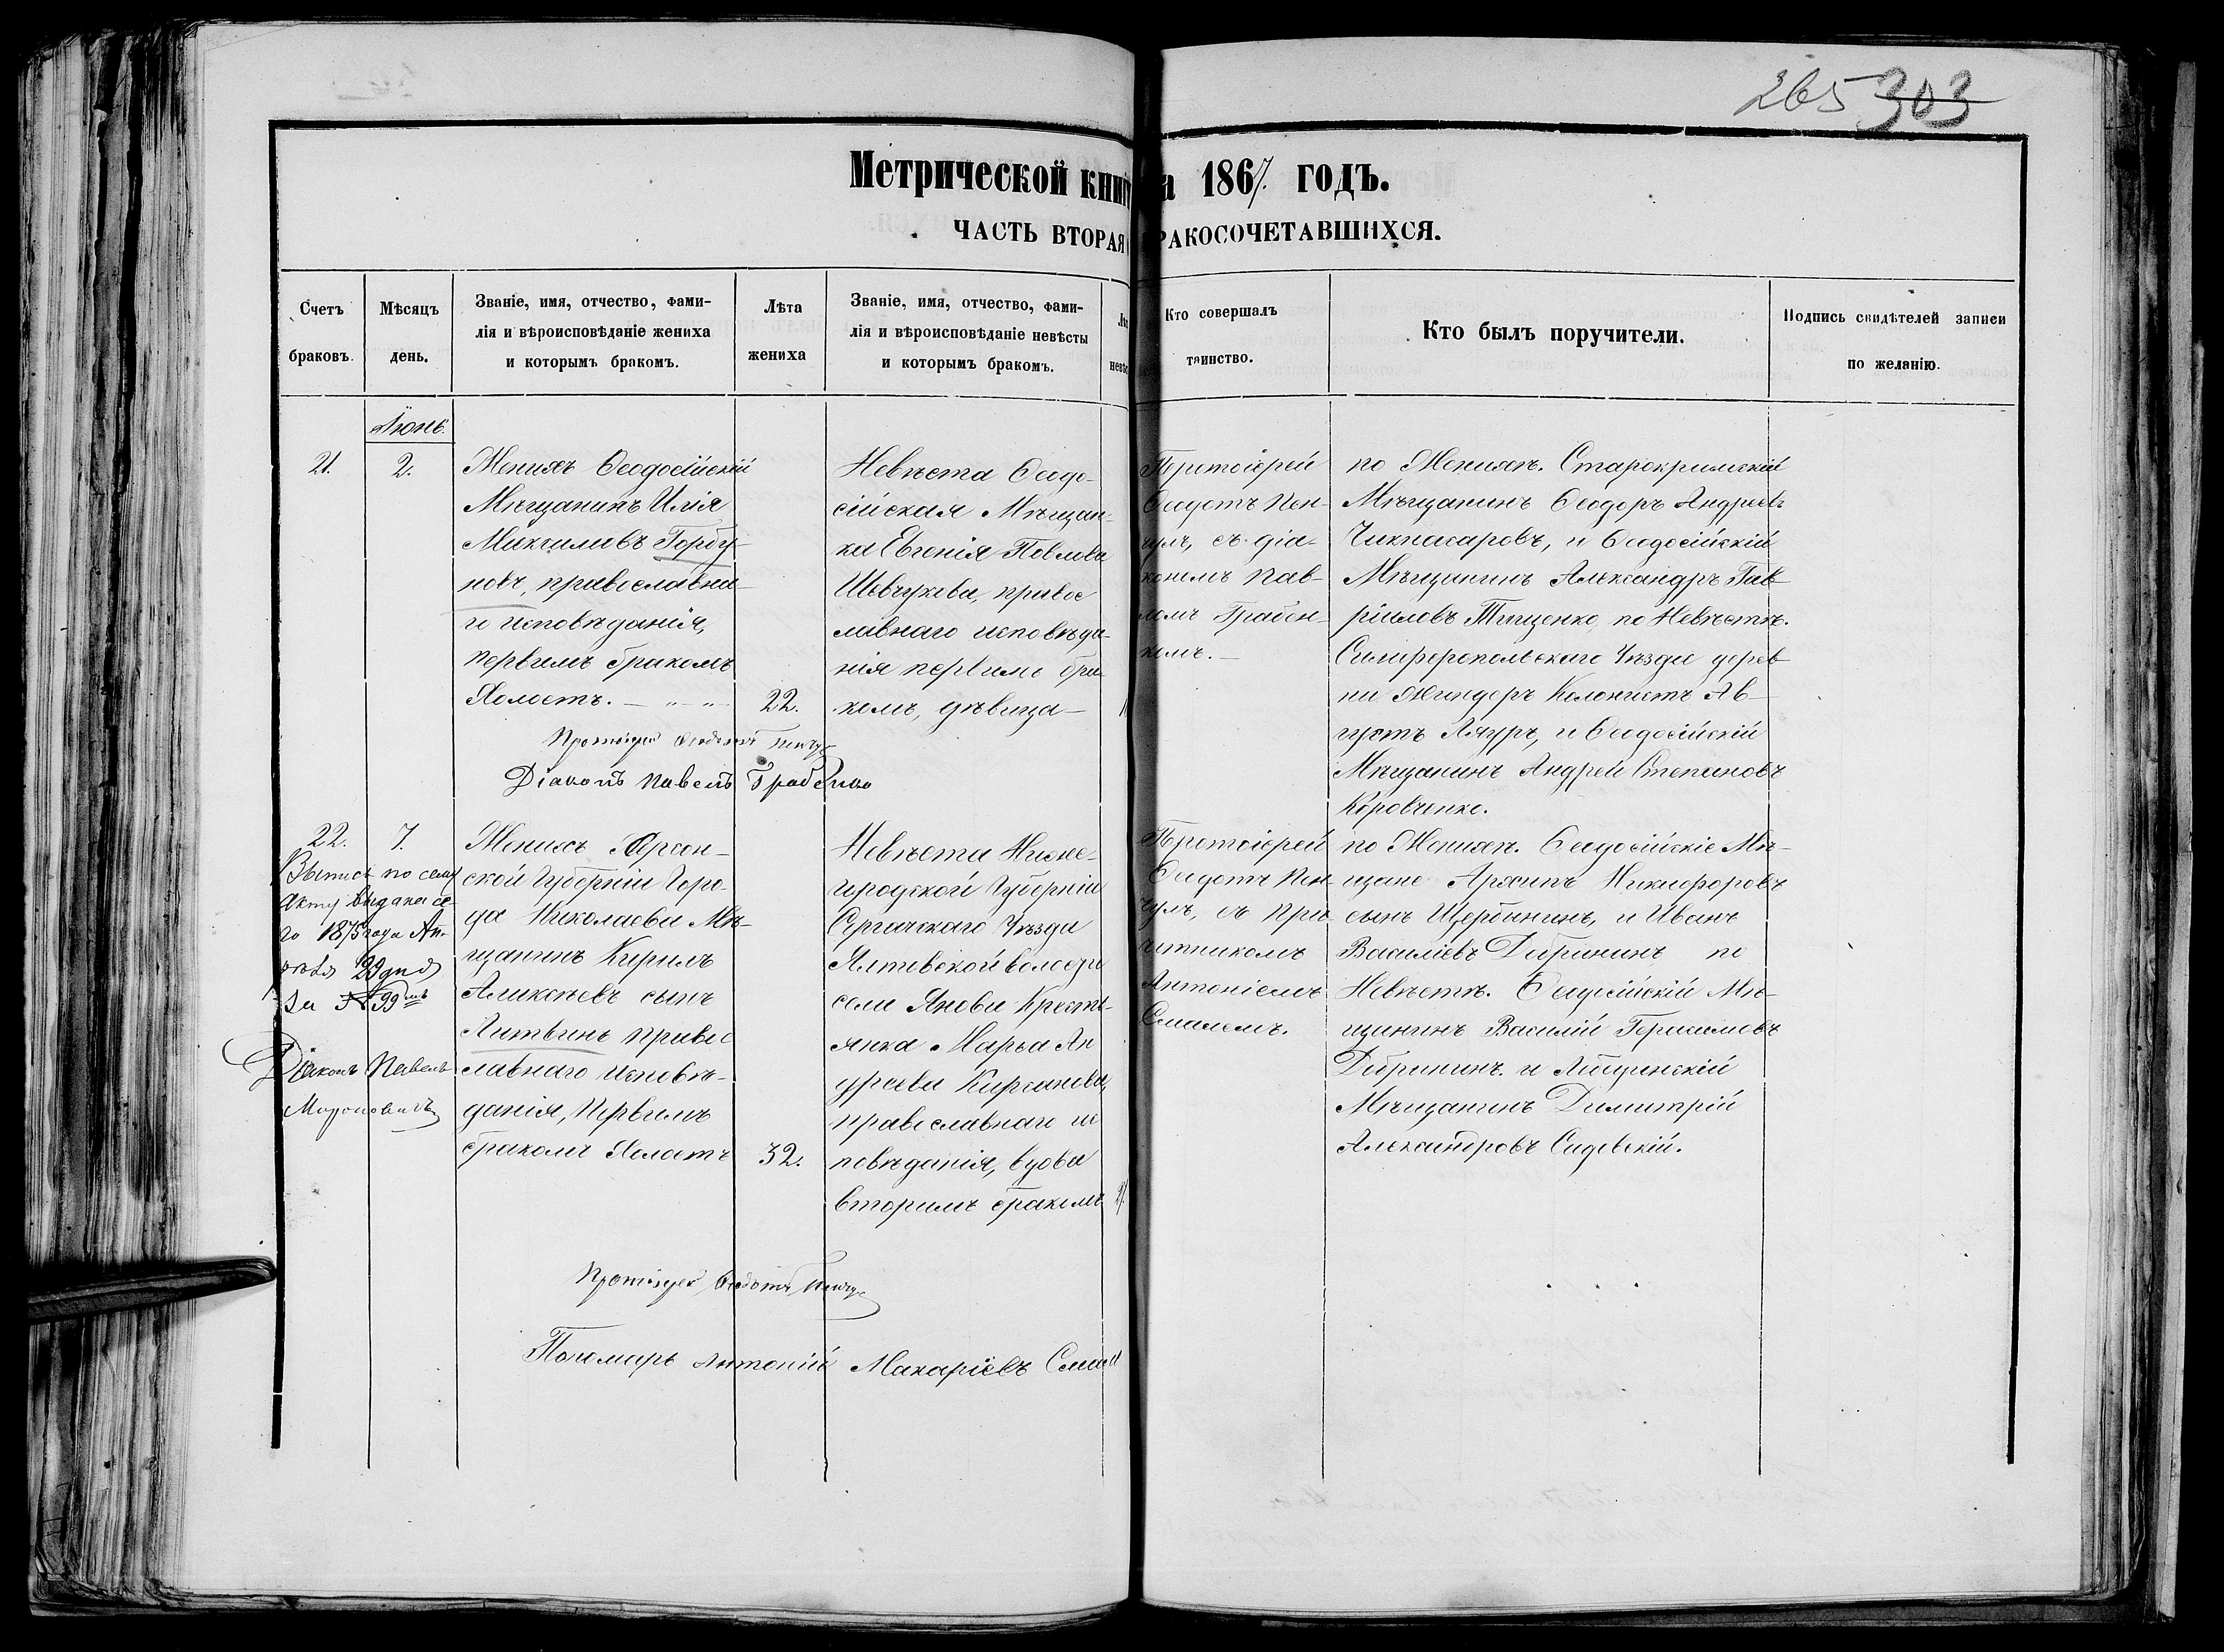 265 303
Метрической книг а 1867. годъ.
ЧАСТЬ ВТОРАЯ РАКОСОЧЕТАВШИХСЯ.
Счетъ
браковъ.
Мѣсяцъ
день.
Званіе, имя, отчество, фами-
лія и вѣроисповѣданіе жениха
и которымъ бракомъ.
Лѣта
жениха
Званіе, имя, отчество, фами-
лія и вѣроисповѣданіе невѣсты
и которымъ бракомъ.
Кто совершалъ
таинство.
Кто былъ поручители.
Подпись свидѣтелей записи
по желанію.
Іюнь.
21.
2.
Женихъ Ѳеодосійскій
Мѣщанинъ Илія
Михаиловъ Горбу-
новъ, православна-
го исповѣданія,
первымъ бракомъ
Холостъ.
22.
Невѣста Ѳеодо-
сійская Мѣщан-
ка Евгенія Павлова
Шевчукова, правос
лавнаго исповѣда-
нія первымъ бра-
комъ, дѣвица
Протоіерей
Ѳеодотъ Пен-
чулъ, съ діа-
кономъ Пав-
ломъ Грабен-
комъ.
по Женихѣ. Старокримскій
Мѣщанинъ Ѳеодоръ Андреевъ
Чикнасаровъ, и Ѳеодосійскій
Мѣщанинъ Александръ Гав-
ріиловъ Тищенко, по Невѣстѣ.
Симферопольскаго Уѣзда дерев-
ни Колонистъ Ав-
густъ Лауръ, и Ѳеодосійскій
Мѣщанинъ Андрей Степановъ
Коровченко.
Протоіерей Ѳеодотъ Пенчул
Діаконъ Павелъ Грабенко
22.
7.
Выпись по сему
акту выдана се-
го 1875 года Ап-
рѣля 29 дня
за № 99мъ
Діаконъ Павелъ
Мороновичъ
Женихъ Херсон-
ской Губерніи Горо-
да Николаева Мѣ-
щанинъ Кирилъ
Аликсѣевъ сынъ
Литвинъ правос
лавнаго исповѣ-
данія, первымъ
бракомъ Холостъ
32.
Невѣста Ниже-
городской Губерніи
Сергачскаго Уѣзда
Ялтивской волости
села Янова Кресть-
янка Марьа Ан
дреева Кирсанова,
православнаго ис
повѣданія, вдова
вторымъ бракомъ
Протоіерей
Ѳеодотъ Пен-
чулъ, съ При-
чтникомъ
Антоніемъ
Смалемъ.
по Женихѣ. Ѳеодосійскіе Мѣ-
щане Архипъ Никифоровъ
сынъ Щербининъ, и Иванъ
Василіевъ Дибринин по
Невѣстѣ. Ѳеодосійскій Мѣ-
щанинъ Василій Герасимовъ
Дибрининъ. и
Мѣщанинъ Димитрій
Александровъ Садовскій.
Протоіерей Ѳеодотъ Пенчул
Пономарь Антоній Макаріевъ Смал